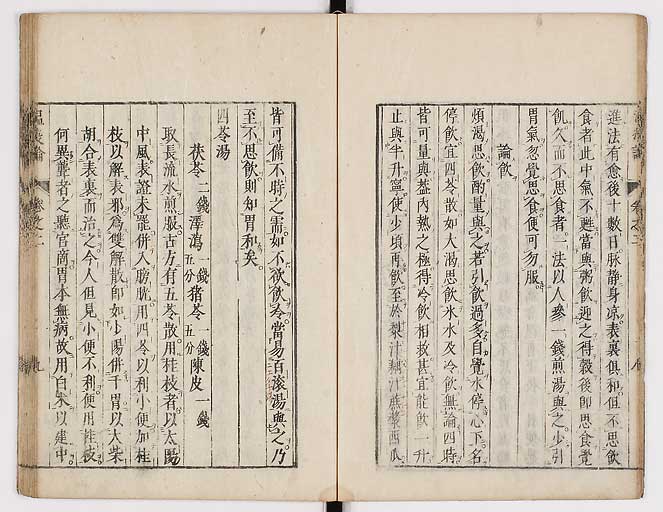 進法有愈後十數日脉静身凉表裏俱和但不思飲
食者此中氣不甦當與粥飲迎之得穀後即思食覺
飢久而不思食者一法以人參一錢煎湯與之少引
胃氣忽覺思食便可勿服
論飲
煩渴思飲酌量與之若引飲過多自覺水停心下名
停飲宜四苓散如大渴思飲氷水及冷飲無論四時
皆可量與蓋内熱之極得冷飲相救甚宜能飲一升
止與半升寧使少頃再飲至於梨汁藕汁蔗漿西瓜
皆可備不時之需如不欲飲冷當易百滚湯與之乃
至不思飲則知胃和矣
四苓湯
茯苓二錢澤瀉一錢五分猪苓一錢五分陳皮一錢
取長流水煎服古方有五苓散用桂枝者以太陽
中風表證未罷併入膀胱用四苓以利小便加桂
枝以解表邪爲雙解散即如少陽併于胃以大柴
胡合表裏而治之今人但見小便不利便用桂枝
何異聾者之聽宫商胃本無病故用白朮以建中
温疫論 卷之二 九